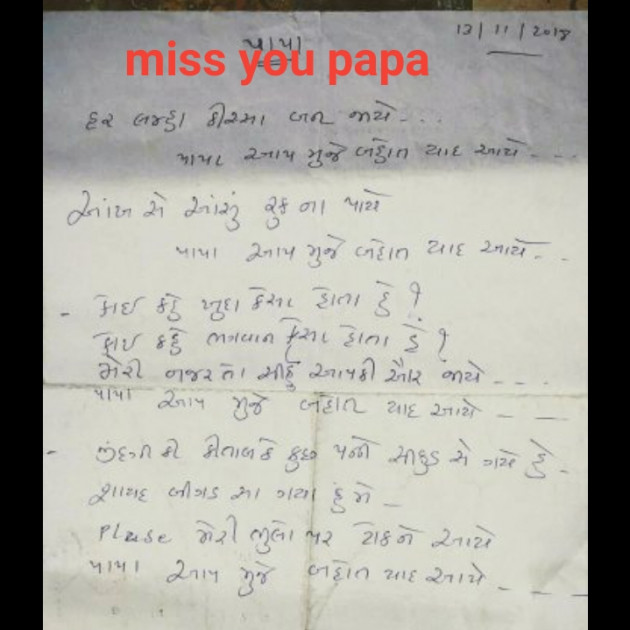 13/11/2018
પાપા
miss you papa
હર લમ્હા કીસ્સા બન જાયે...
પાપા આપ મુજે બહોત યાદ આયે...
આંખ સે આંસું રુક ના પાયે
પાપા આપ મુજે બહોત યાદ આયે..
- કોઈ કહે ખુદા કેસા હોતા હે ?
કોઈ કહે ભગવાન કેસા હોતા હે ?
મેરી નજર તો સીર્ફ આપકી ઔર જાયે...
પાપા આપ મુજે બહોત યાદ આયે - -
- જીંદગી કી કીતાબ કે કુછ પન્ને સીકુડ સે ગયે હે -
શાયદ બીગડ સા ગયા હું મે -
Please મેરી ભુલો પર ટોકને આયે
પાપા આપ મુજે બહોત યાદ આયે - - -